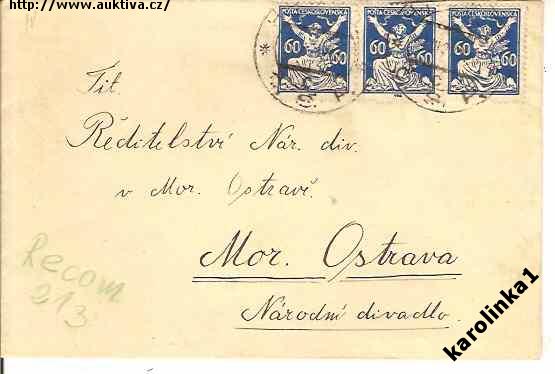 http://www.auktiva.cz/
POŠTA ČESKOSLOVENSKÁ POŠTA ČESKOSLOVENSKÁ POŠTA ČESKOSLOVENSKÁ
60 60 60 60 60 60
Tit.
Ředitelství Nár. div.
v Mor. Ostravě.
Mor. Ostrava
Národní divadlo.
Recom
213
karolinka1